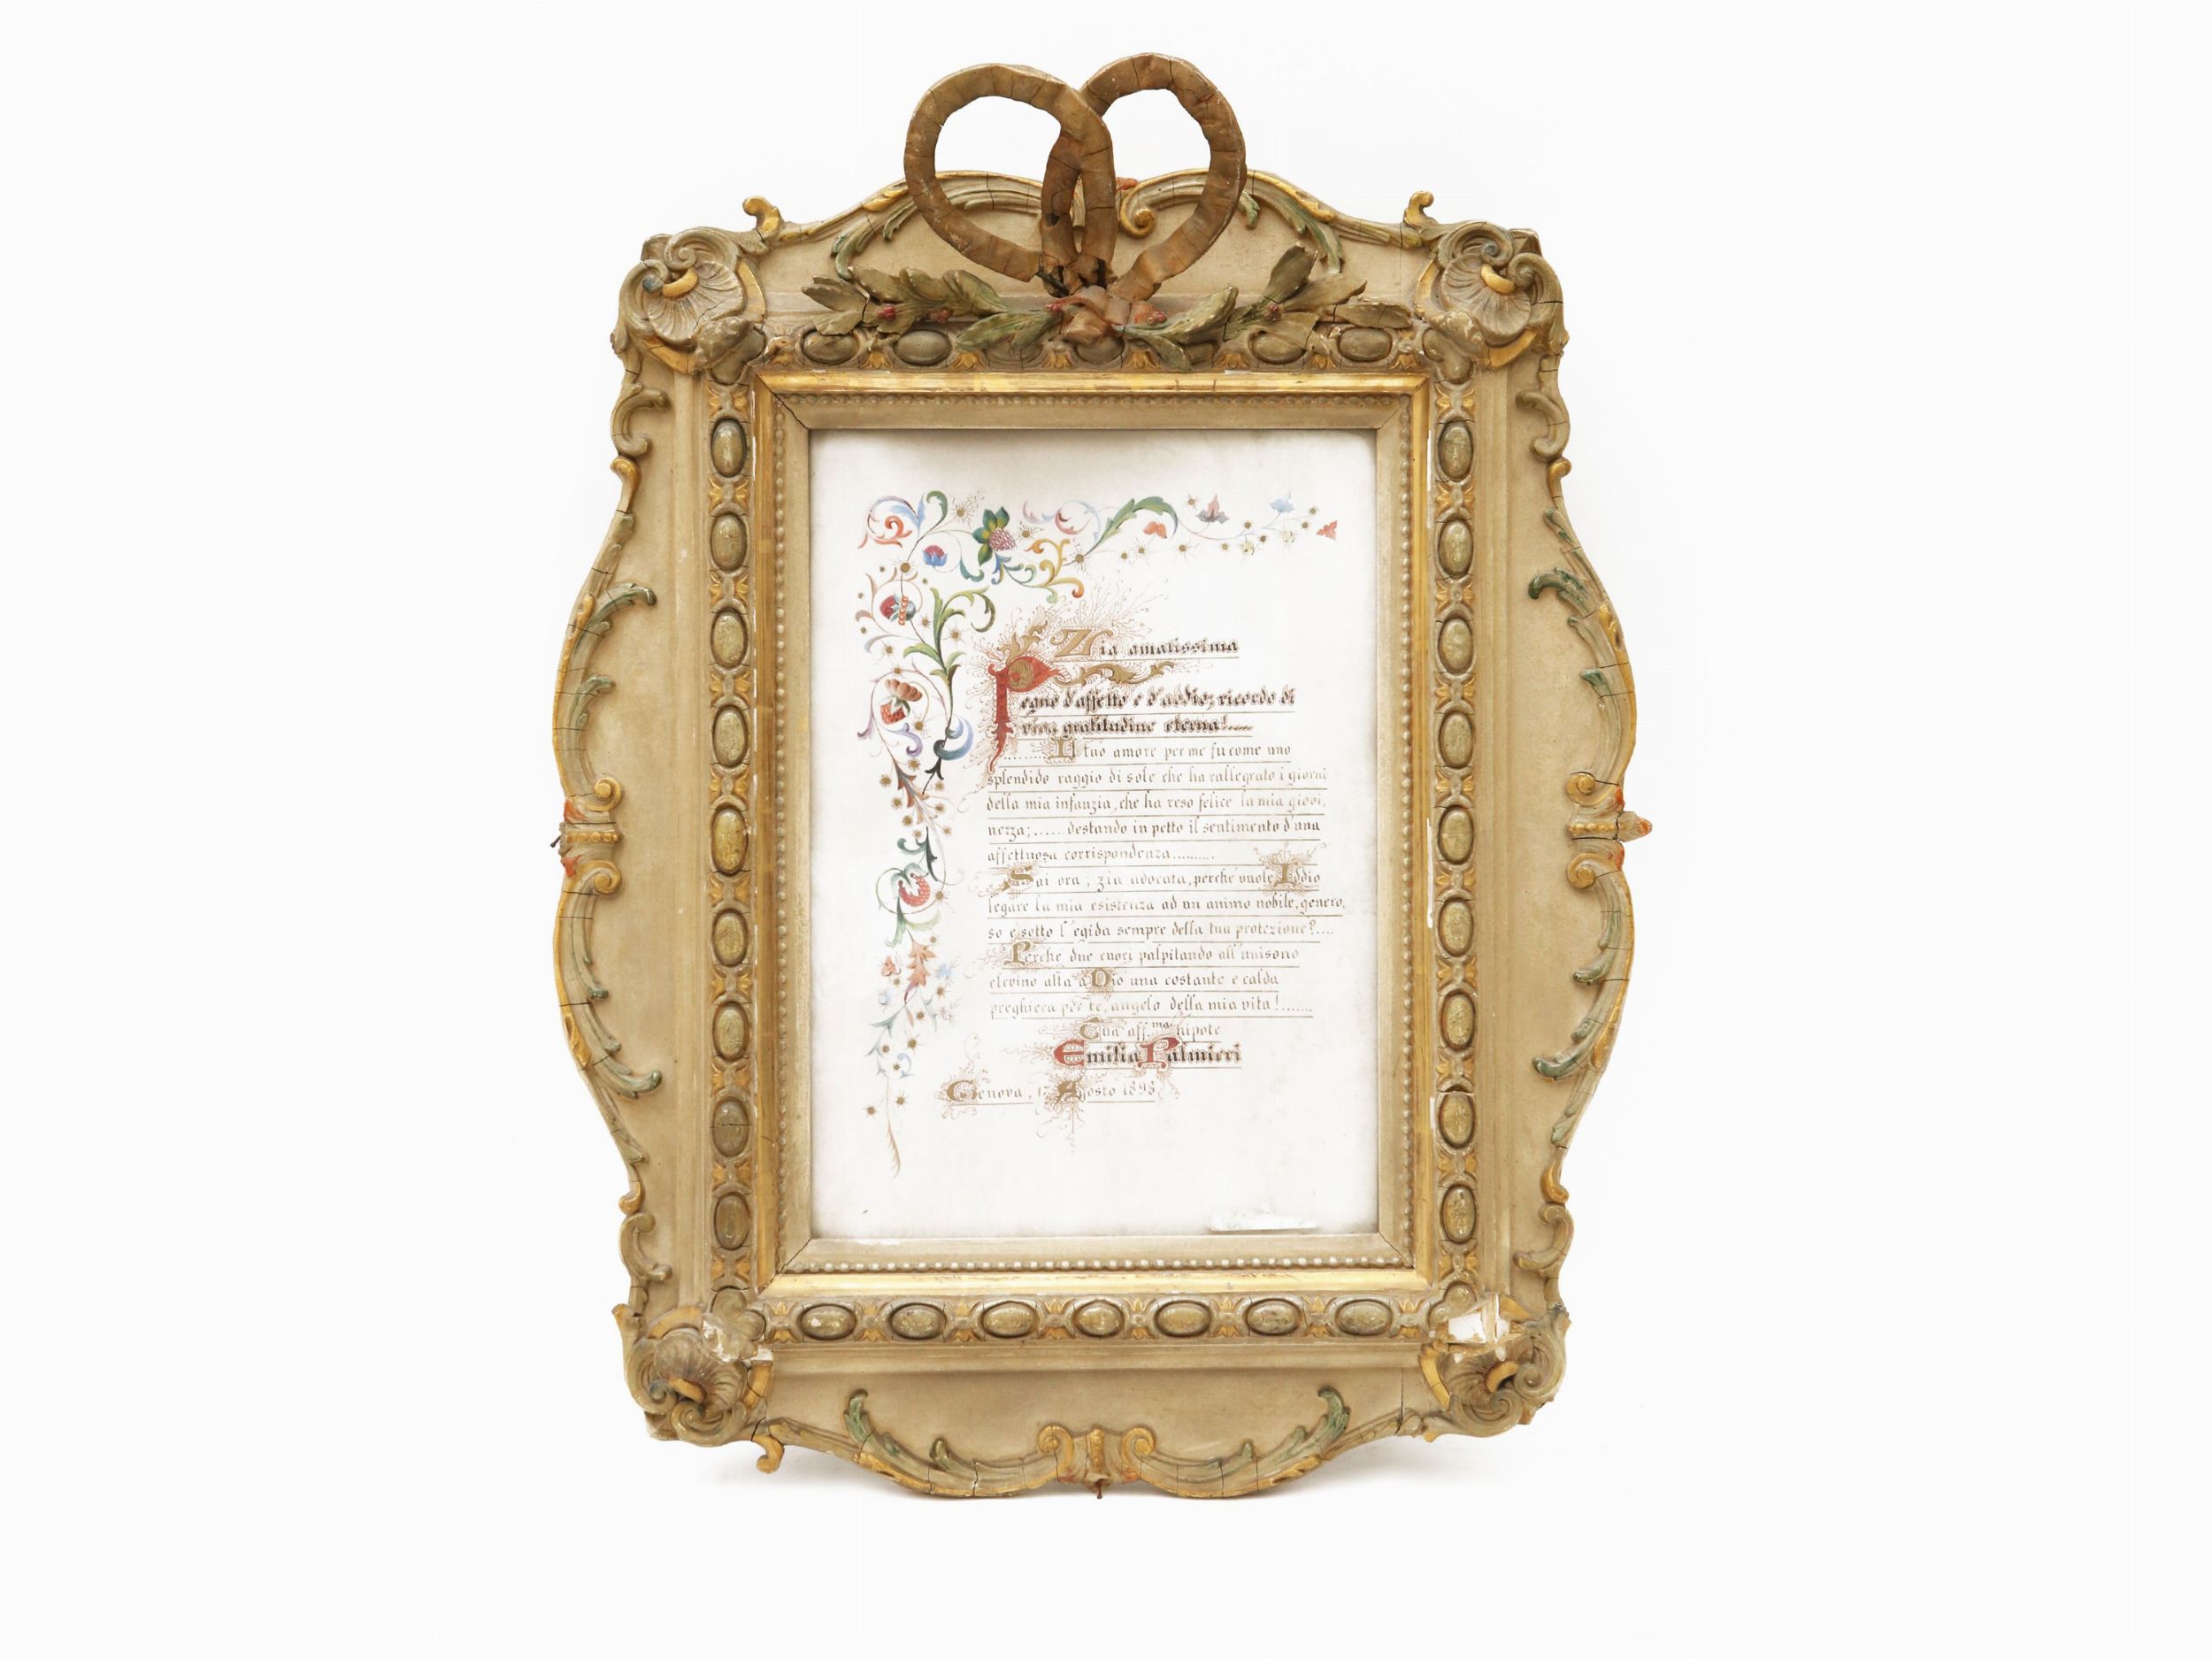 Zia amatissima
Pegno d'affetto e d'addio; ricordo di
viva gratitudine eterna!....
........Il tuo amore per me fu come uno
splendido raggio di sole che ha rallegrato i giorni
della mia infanzia, che ha reso felice la mia giovi,
nezza; ...... destando in petto il sentimento d'una
affettuosa corrispondenza..........
Sai ora; zia adorata, perché vuole Iddio
legare la mia esistenza ad un animo nobile, genero,
so e sotto l'egida sempre della tua protezione?....
Perché due cuori palpitando all'unisono
elevino alta a Dio una costante e calda
preghiera per te, angelo della mia vita!.......
Tua aff.ma nipote
Emilia Palmieri
Genova, Agosto 1898